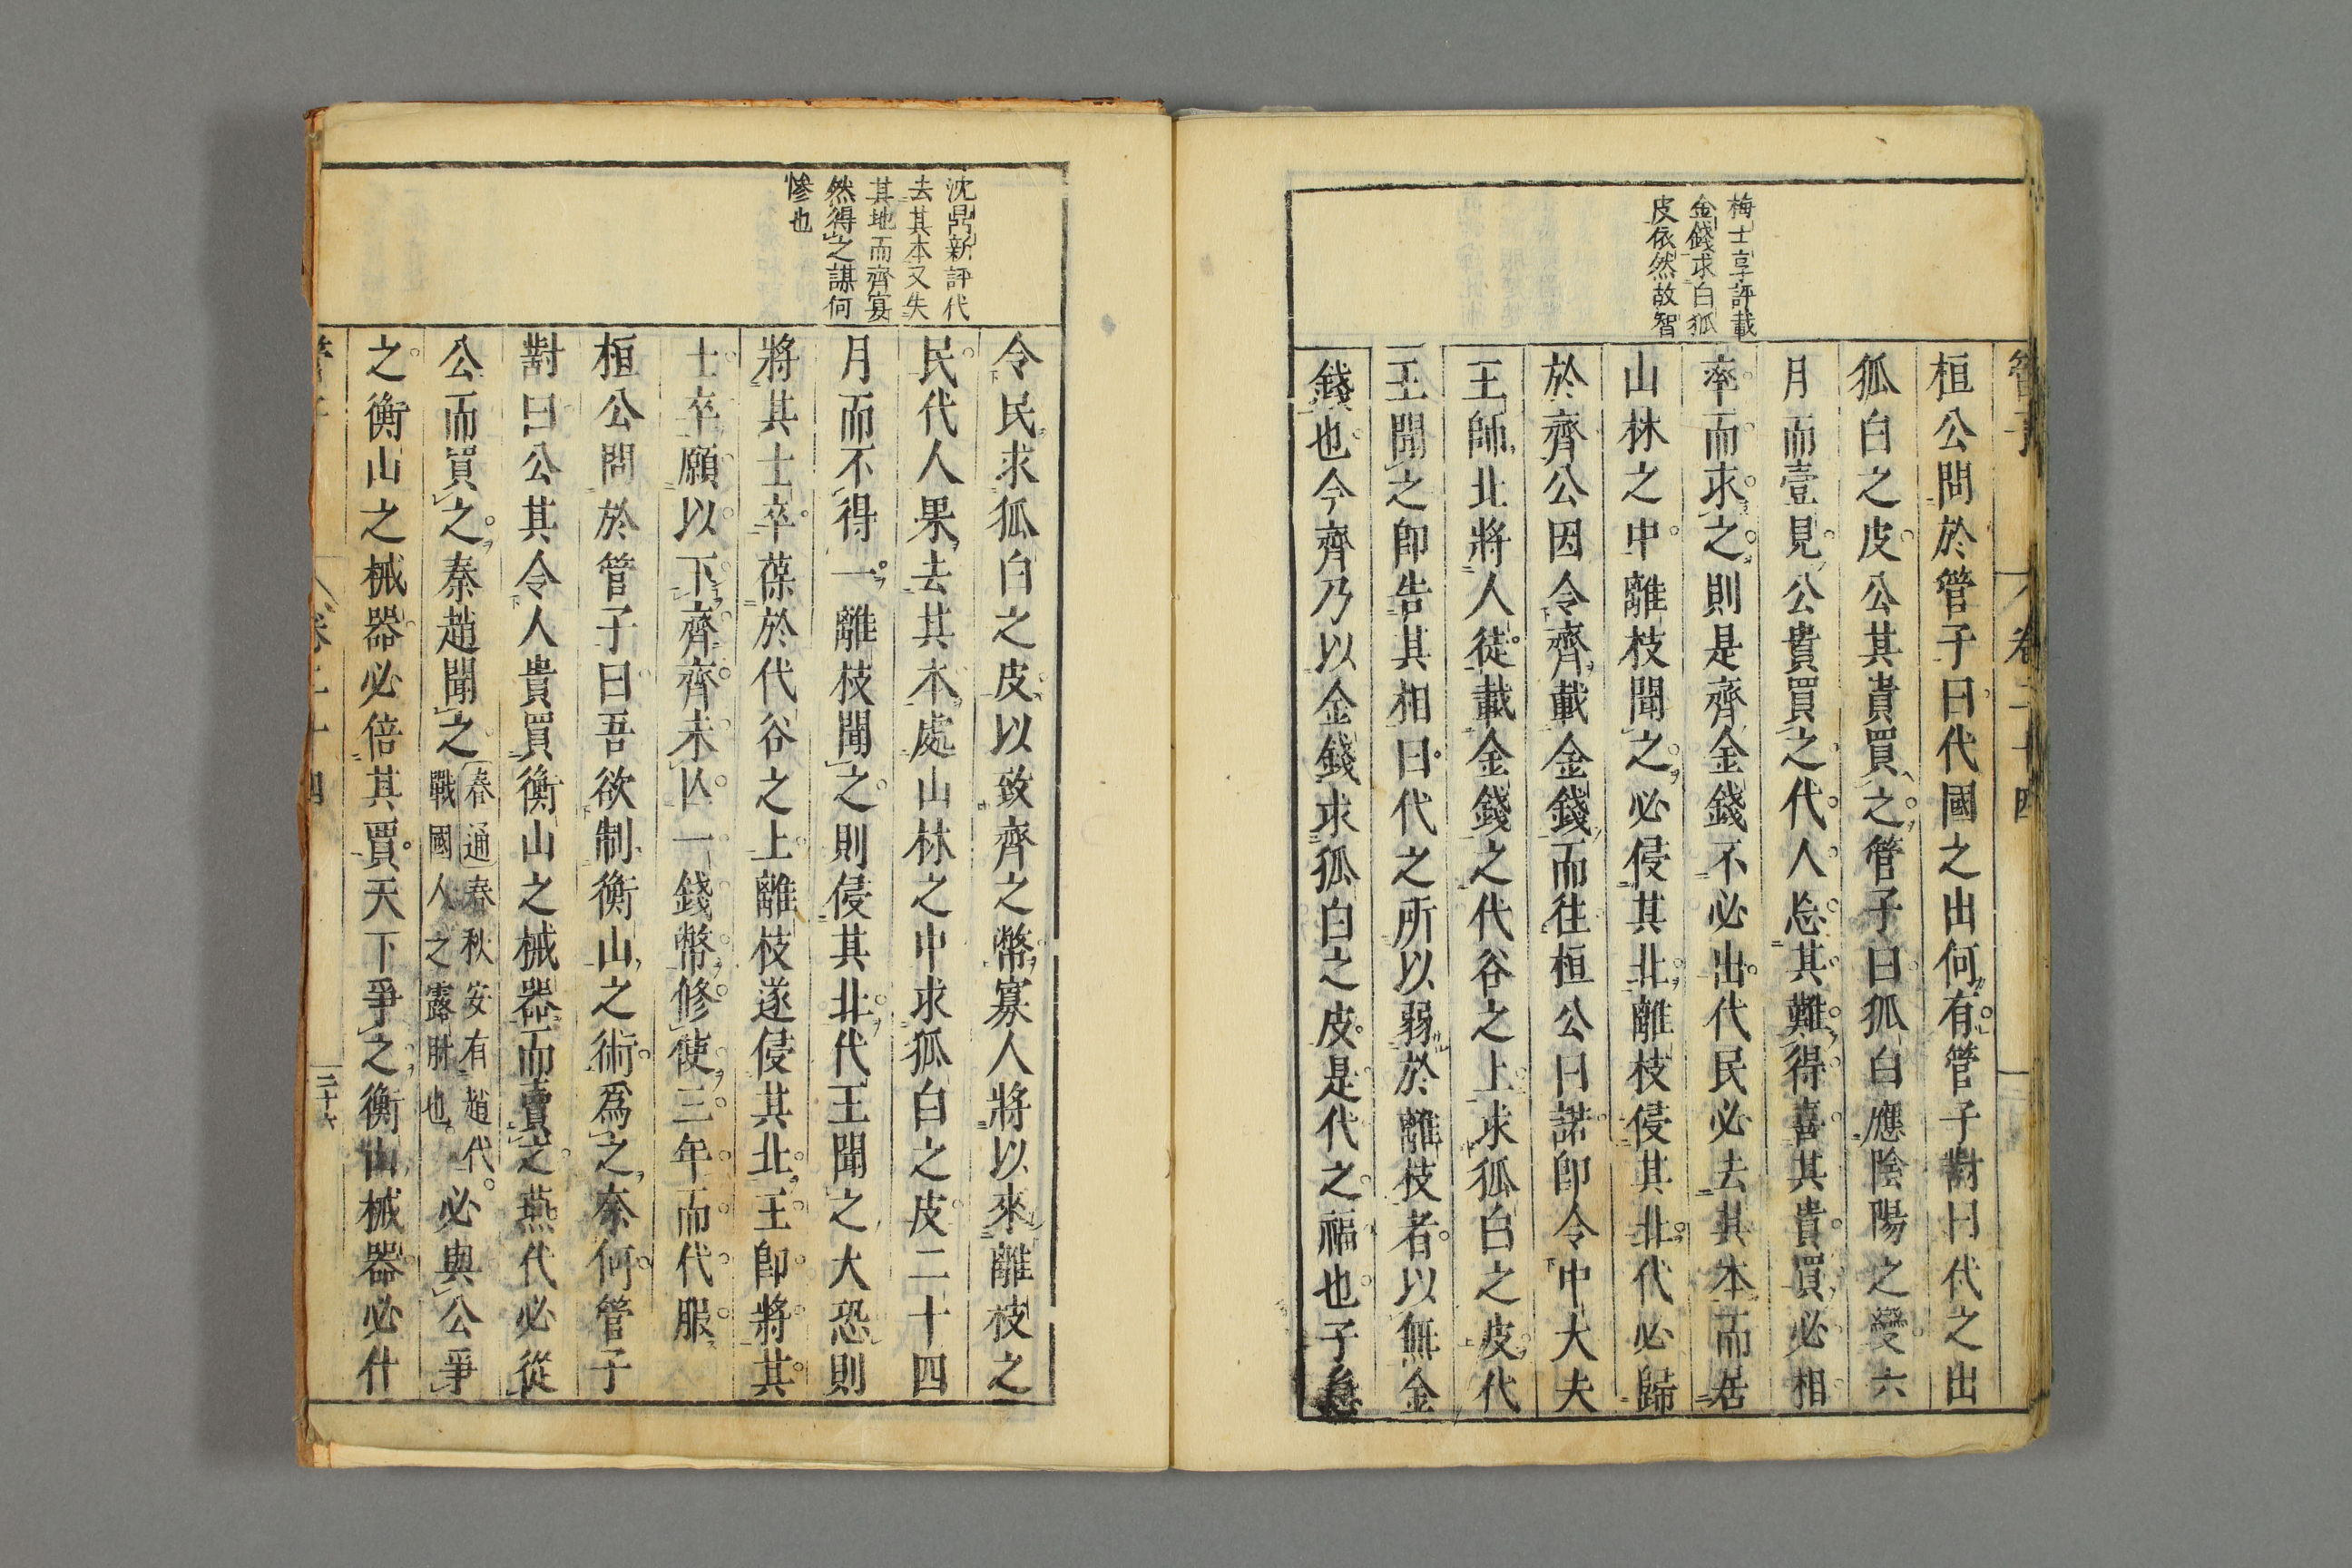 管子
卷二十四
梅士享評載
金錢求白狐
皮依然故智
桓公問於管子曰代國之出何有管子對曰代之出
狐白之皮公其貴買之管子曰狐白應陰陽之變六
月而壹見公貴買之代人忘其難得喜其貴買必相
率而求之則是齊金錢不必出代民必去其本而居
山林之中離枝聞之必侵其北離枝侵其北代必歸
於齊公因令齊載金錢而往桓公曰諾卽令中大夫
王師北將人徒載金錢之代谷之上求狐白之皮代
王聞之卽告其相曰代之所以弱於離枝者以無金
錢也今齊乃以金錢求狐白之皮是代之福也子急
沈鼎新評代
去其本又失
其地而齊宴
然得之謀何
慘也
令民求狐白之皮以致齊之幣寡人將以來離枝之
民代人果去其本處山林之中求狐白之皮二十四
月而不得一離枝聞之則侵其北代王聞之大恐則
將其士卒葆於代谷之上離枝遂侵其北王卽將其
士卒願以下齊齊未亾一錢幣修使三年而代服
桓公問於管子曰吾欲制衡山之術爲之奈何管子
對曰公其令人貴買衡山之械器而賣之燕代必從
公而買之秦趙聞之春通春秋安有趙代戰國人之露肘也必與公爭
之衡山之械器必倍其買天下爭之衡山械器必什
卷二十四
三十六